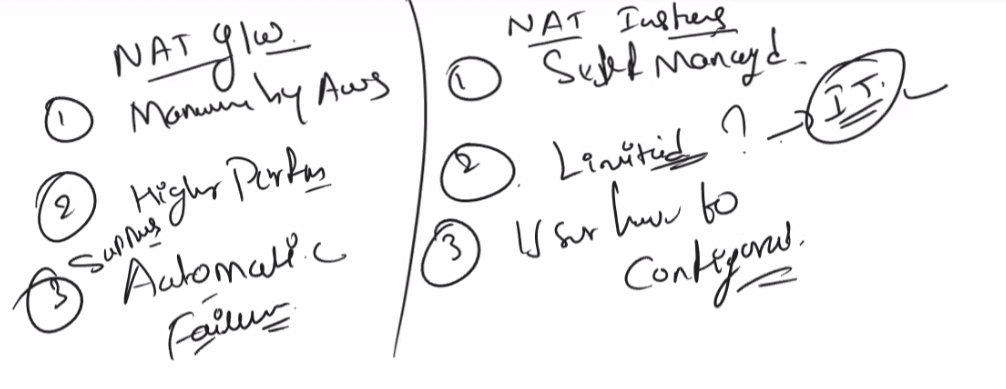 NAT g/w.
① Manage by Aws
② Higher Perfms
Supports
③ Automatic
Failure
NAT Instens
① Self Managed.
② Limitied ? → I.T.
③ User have to
Configured.